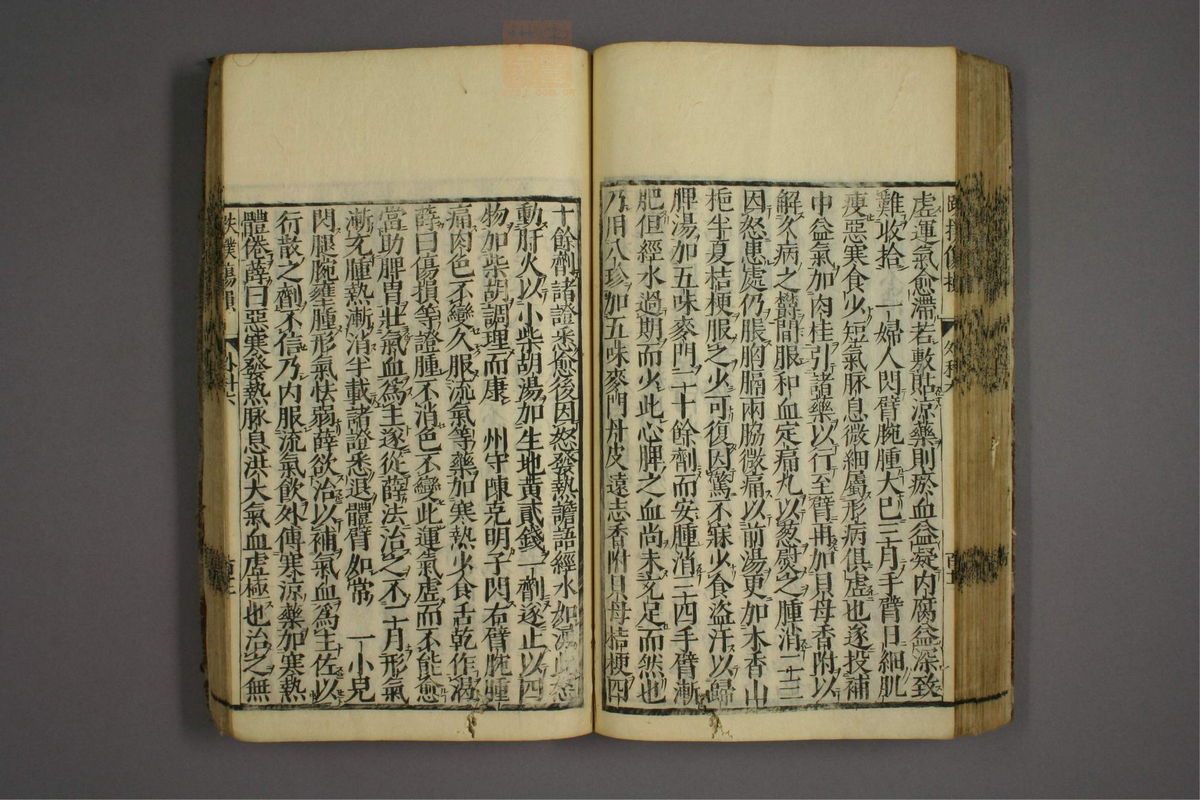 虛運氣愈滯若敷貼凉藥則瘀血益凝内腐益深致
難收拾　一婦人閃臂腕腫大已三月手臂日細肌
瘦惡寒食少短氣脉息微細屬形病俱虛也遂投補
中益氣加肉桂引諸藥以行至臂再加貝母香附以
解久病之欝間服和血定痛丸以葱熨之腫消二三
因怒患處仍脹胸膈兩脇微痛以前湯更加木香山
梔半夏桔梗服之少可復因驚不寐少食盗汗以歸
脾湯加五味麥門二十餘劑而安腫消三四手臂漸
肥但經水過期而少此心脾之血尚未充足而然也
乃用八珍加五味麥門丹皮遠志香附貝母桔梗四
十餘劑諸證悉愈後因怒發熱譫語經水如
動肝火以小柴胡湯加生地黄貳錢一劑遂止以四
物加柴胡調理而康　州守陳克明子閃右臂腕腫
痛肉色不變久服流氣等藥加寒熱少食舌乾作渇
薛曰傷損等證腫不消色不變此運氣虛而不能愈
當助脾胃壯氣血爲主遂從薛法治之不二月形氣
漸充腫熱漸消半載諸證悉退體臂如常　一小兒
閃腿腕壅腫形氣怯弱薛欲治以補氣血爲主佐以
行散之劑不信乃内服流氣飲外傅寒凉藥加寒熱
體倦薛曰惡寒發熱脉息洪大氣血虛極也治之無
跌撲傷損